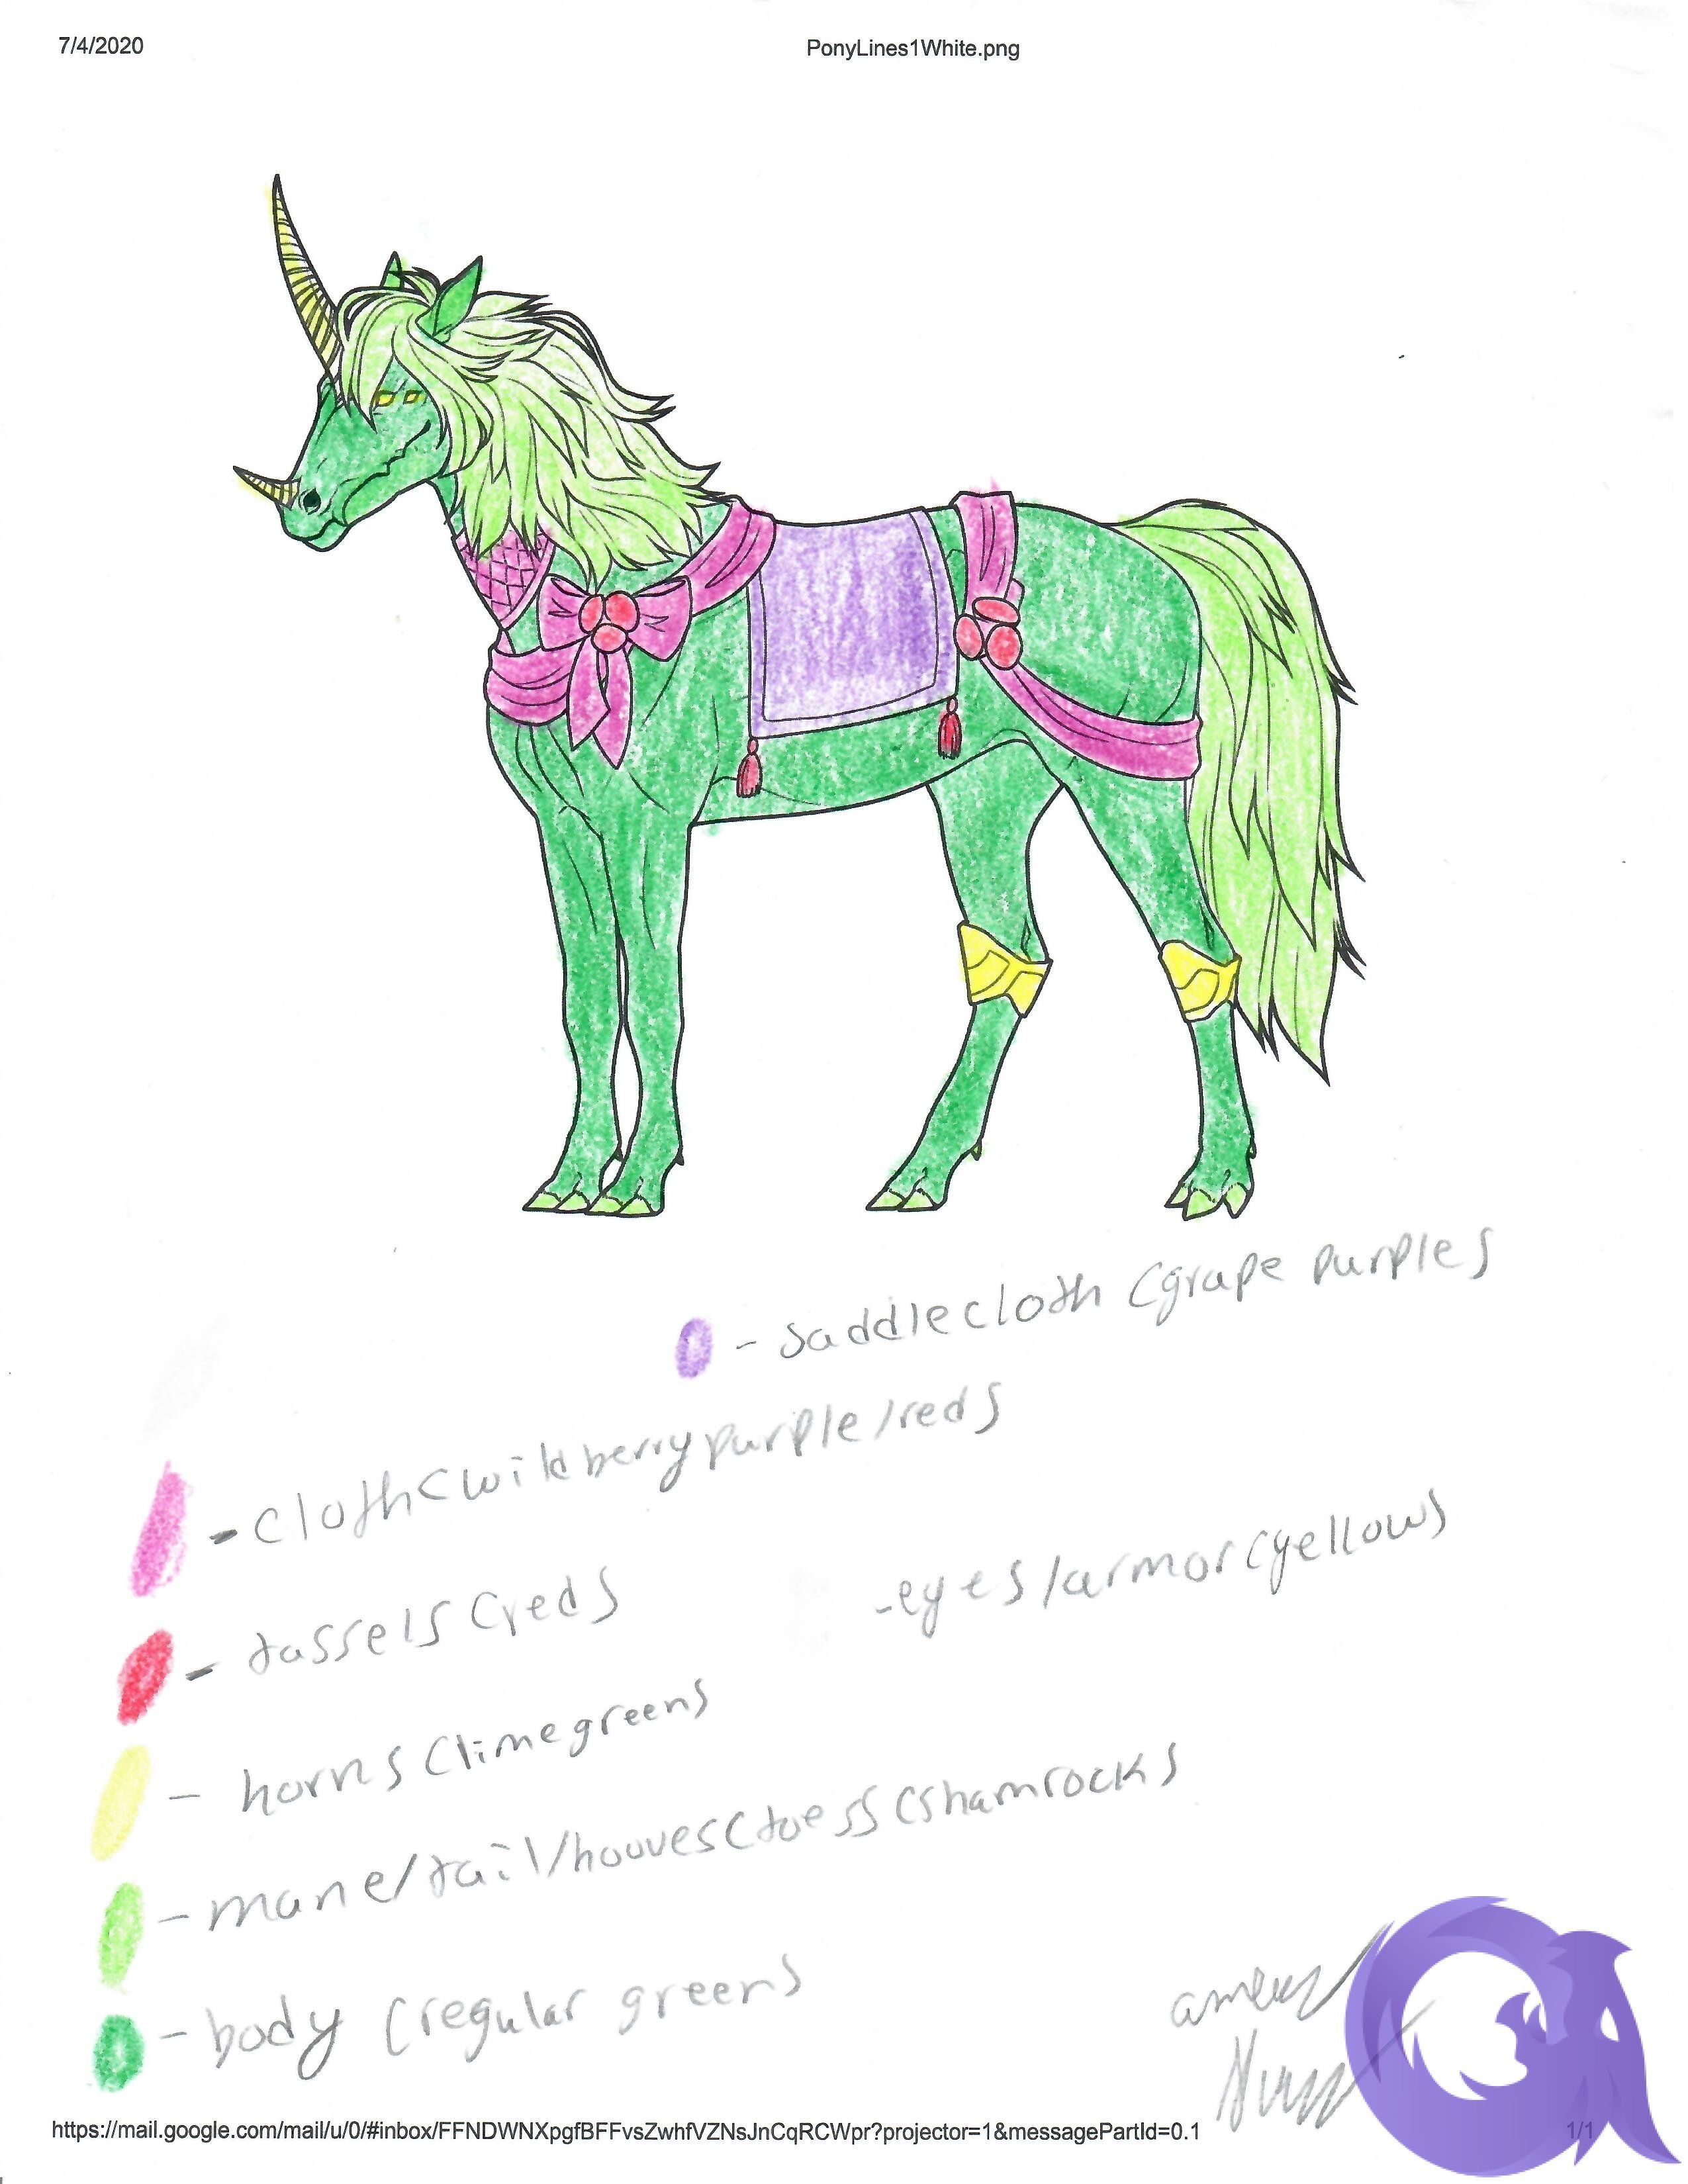 7/4/2020
PonyLines1White.png
- saddle cloth (grape purple)
- cloth (wild berry purple/red)
- tassels (red)
- eyes/armor (yellow)
- horns (lime green)
- mane/tail/hooves (toes) (shamrock)
- body (regular green)
https://mail.google.com/mail/u/0/#inbox/FFNDWNXpgfBFFvsZwhfVZNsJnCqRCWpr?projector=1&messagePartId=0.1
1/1